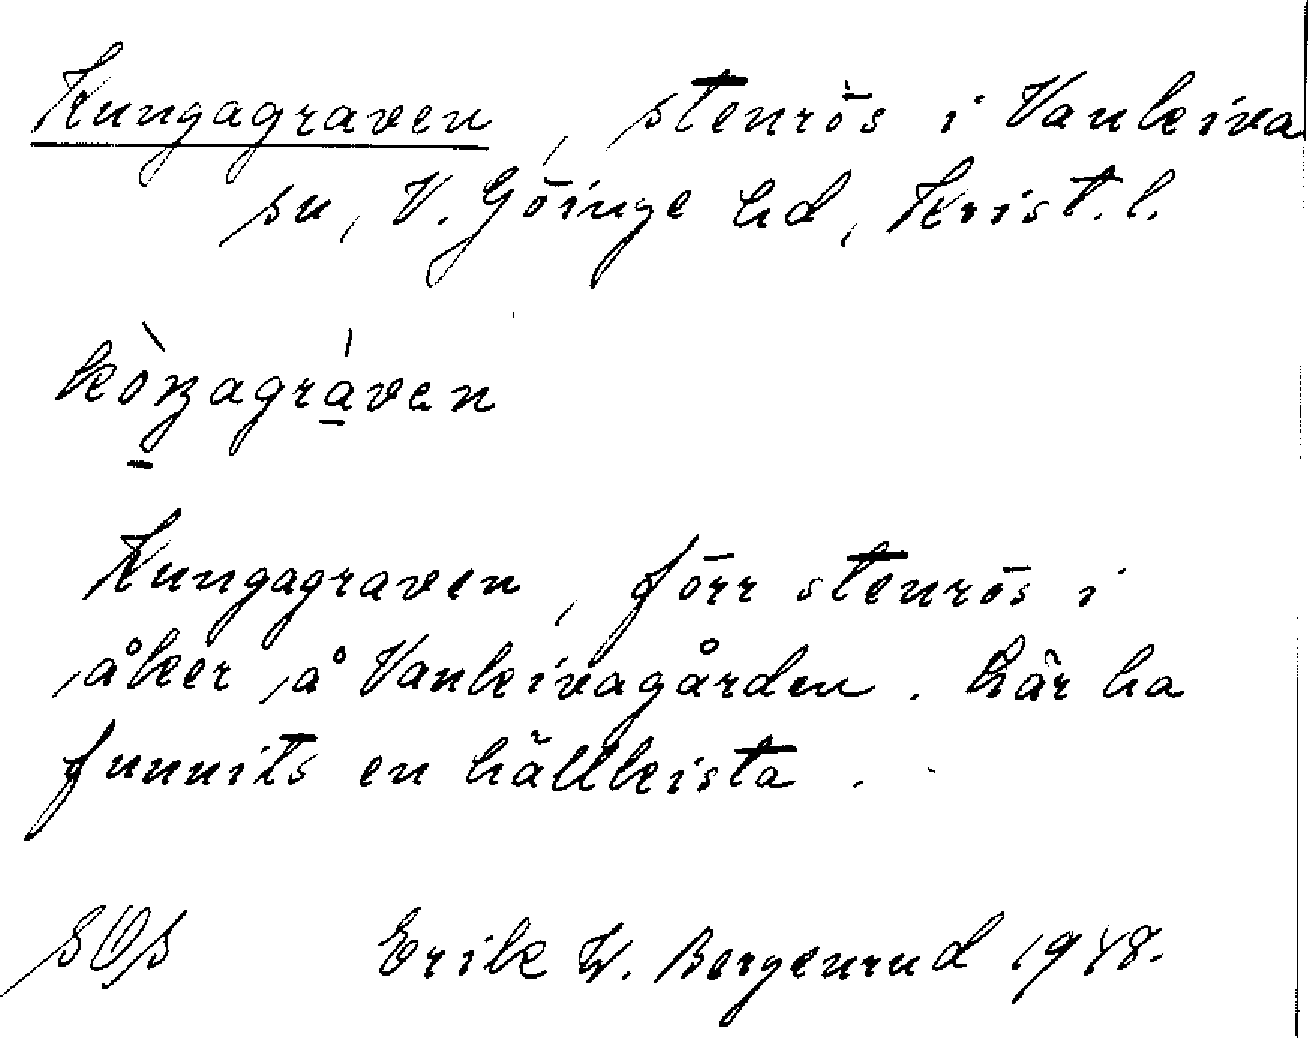 Kungagraven, stenrös i Vankiva
sn, V. Göinge hd, Krist. l.
kòŋagráven
Kungagraven, förr stenrös i
åker å Vankivagården. här ha
funnits en hällkista.
sOs Erik W. Bergenrud 1948.